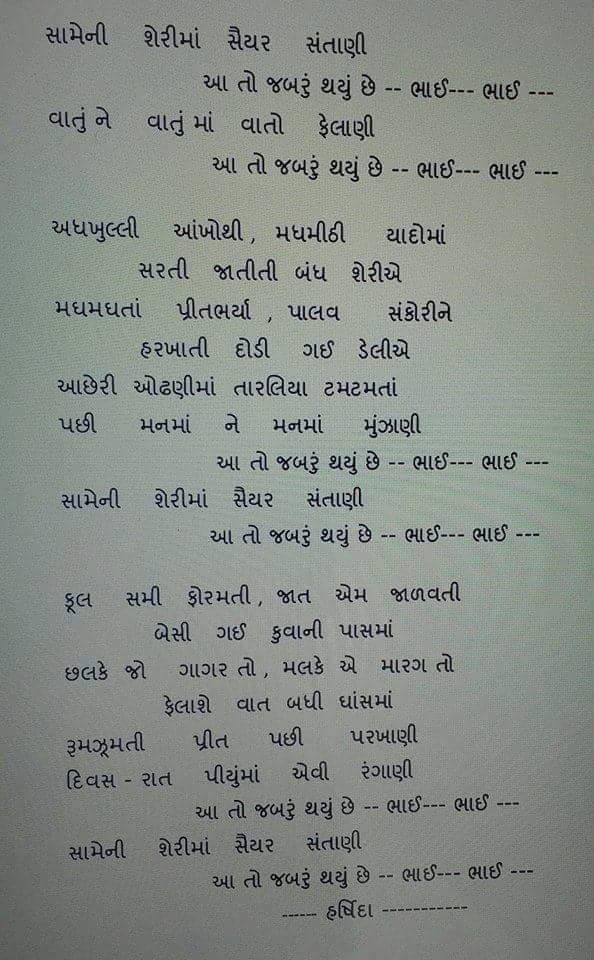 સામેની શેરીમાં સૈયર સંતાણી
આ તો જબરું થયું છે -- ભાઈ--- ભાઈ ---
વાતું ને વાતું માં વાતો ફેલાણી
આ તો જબરું થયું છે -- ભાઈ--- ભાઈ ---
અધખુલ્લી આંખોથી , મધમીઠી યાદોમાં
સરતી જાતીતી બંધ શેરીએ
મઘમઘતાં પ્રીતભર્યા , પાલવ સંકોરીને
હરખાતી દોડી ગઈ ડેલીએ
આછેરી ઓઢણીમાં તારલિયા ટમટમતાં
પછી મનમાં ને મનમાં મુંઝાણી
આ તો જબરું થયું છે -- ભાઈ--- ભાઈ ---
સામેની શેરીમાં સૈયર સંતાણી
આ તો જબરું થયું છે -- ભાઈ--- ભાઈ ---
ફૂલ સમી ફોરમતી , જાત એમ જાળવતી
બેસી ગઈ કુવાની પાસમાં
છલકે જો ગાગર તો , મલકે એ મારગ તો
ફેલાશે વાત બધી ઘાંસમાં
રૂમઝૂમતી પ્રીત પછી પરખાણી
દિવસ - રાત પીયુંમાં એવી રંગાણી
આ તો જબરું થયું છે -- ભાઈ--- ભાઈ ---
સામેની શેરીમાં સૈયર સંતાણી
આ તો જબરું થયું છે -- ભાઈ--- ભાઈ ---
------ હર્ષિદા -----------